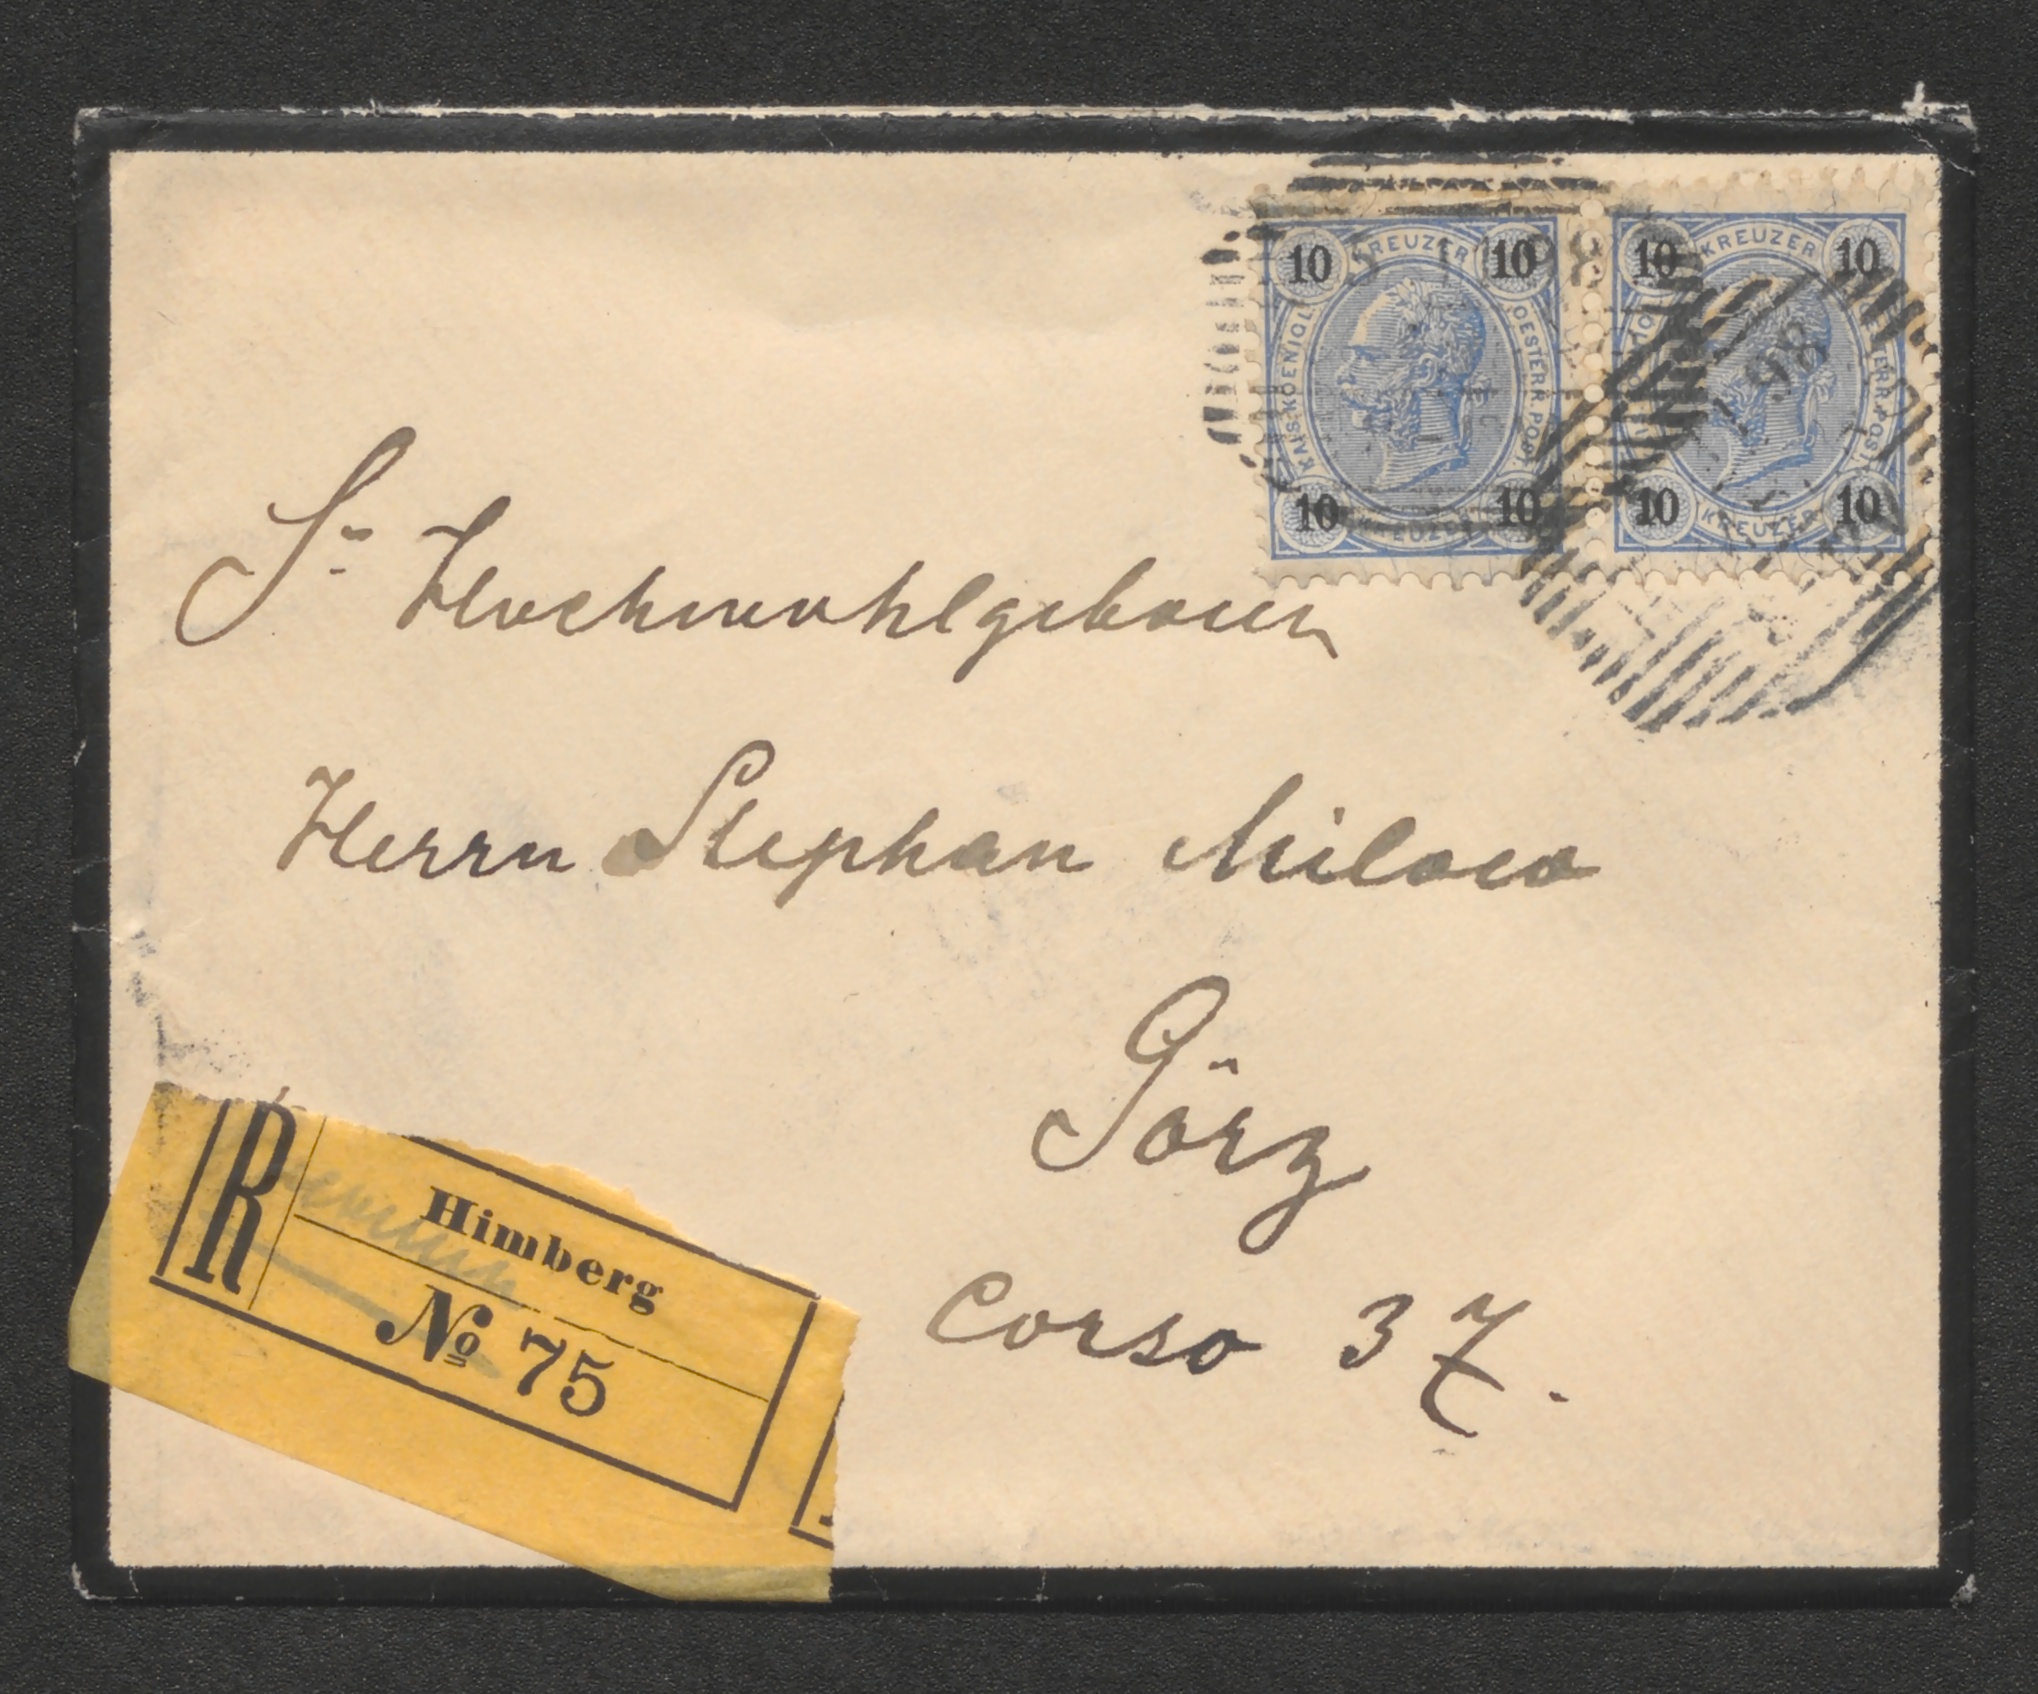 10 KREUZER 10 10 KREUZER 10
KAIS. KOENIGL. OESTERR. POST.
10 KREUZER 10 10 KREUZER 10
98
Sr Hochwohlgeboren
Herrn Stephan Milow
Görz
Corso 37.
R Himberg
No 75